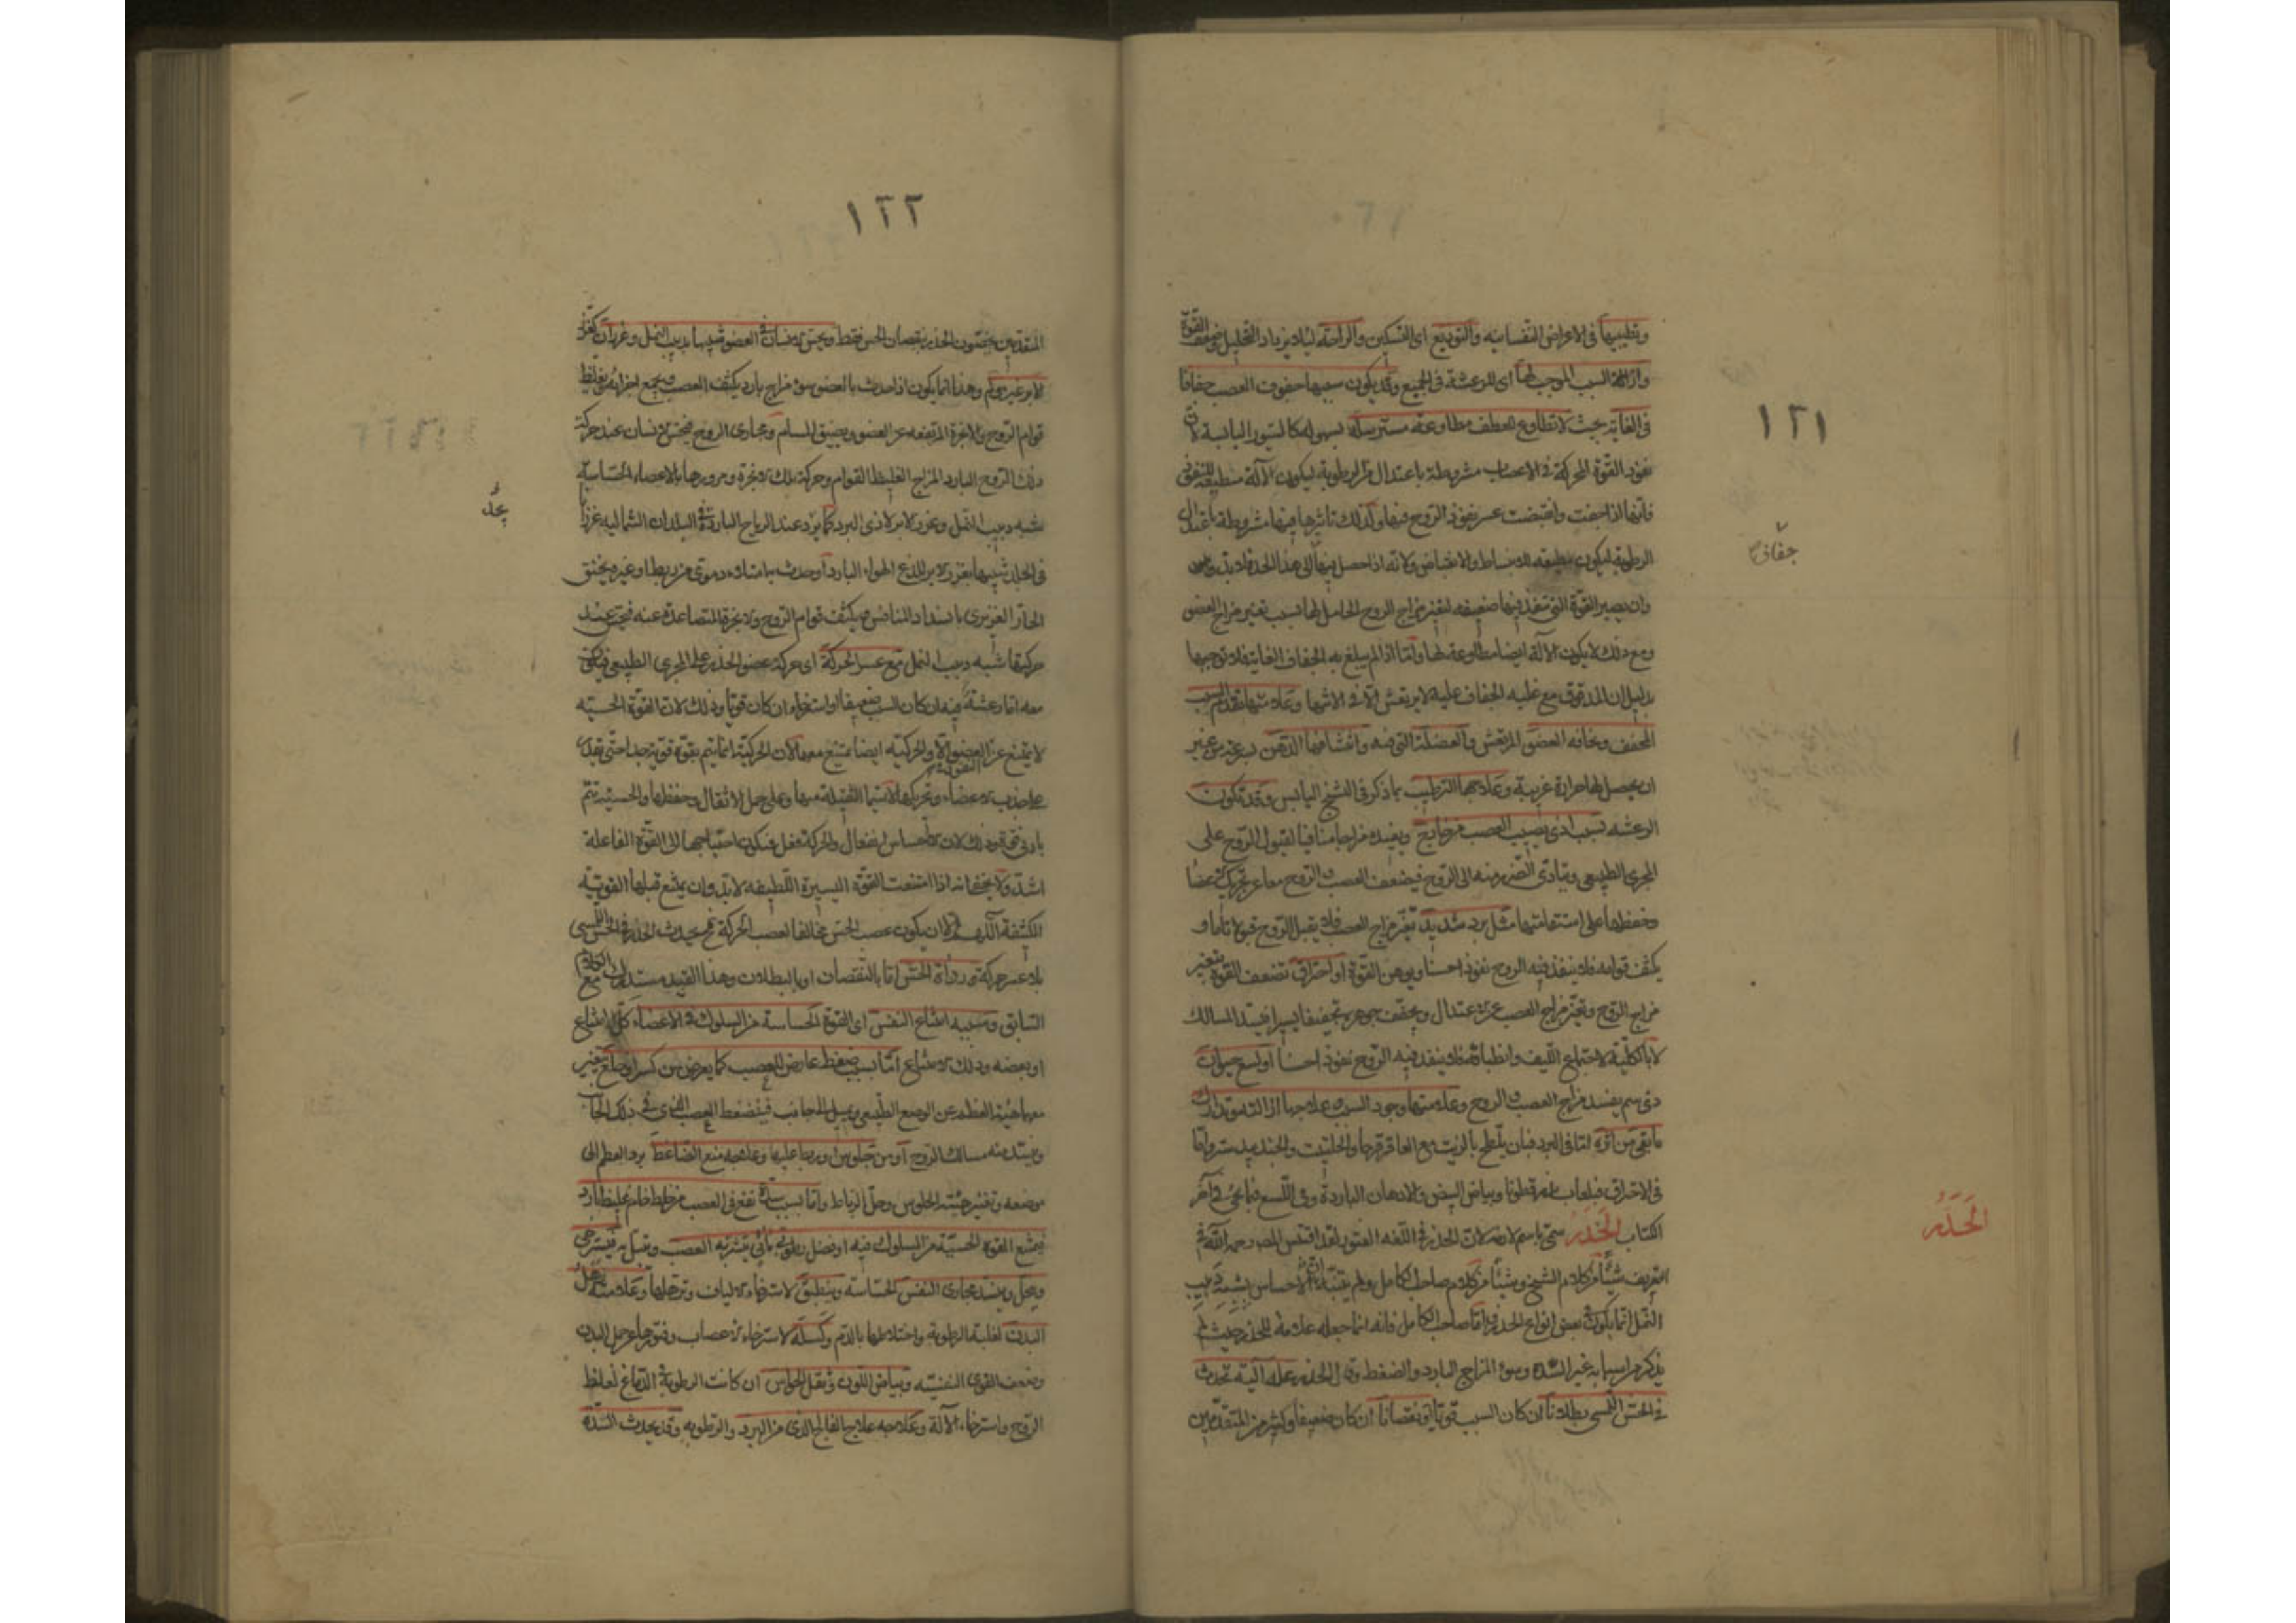 ١٢١
وتطييبها فى الاعراض النفسانيه والتوديع اى التسكين والراحة ليلا يزداد التحليل فيضعف القوة
وازالة السبب الموجب لها اى للرعشة فى الجميع وقد يكون سببها جفوف العصب جفافا
فى الغاية بحيث لا تطاوع للعطف مطاوعة مسترسلة بسهوله كالسيور اليابسة لان
نفوذ القوة المحركة فى الاعصاب مشروطة باعتدال فى الرطوبة ليكون الآلة
فانها اذا جفت وانقبضت عسر نفوذ الروح فيها وكذلك تاثيرها فيها مشروطة باعتدال
الرطوبة ليكون مطيعه للانبساط والانقباض ولانه اذا حصل فيها الى هذا الحد لا بد
جفافى
وان يصير القوة التى تنفذ فيها ضعيفه لتغير مزاج الروح الحامل لها بسبب تغير مزاج العضو
ومع ذلك لا يكون الآلة ايضا مطاوعة لها واما اذا لم يبلغ به الجفاف الغاية فلا توجبها
بدليل ان المدقوق مع غلبه الجفاف عليه لا يرتعش الا فى الانتها وعلامتها تقدم السبب
المجفف ونحافه العضو المرتعش والعضلة التى فيه وانتشافها الدهن بسرعة من غير
ان يحصل لها حرارة غريبة وعلاجها الترطيب بما ذكر فى التشنج اليابس وقد تكون
الرعشه بسبب اذى يصيب العصب من خارج ويفيده مزاجا منافيا لقبول الروح على
المجرى الطبيعى ويتأدى الضرر منه الى الروح فيضعف العصب والروح معا عن تحريك الاعضا
وحفظها على استقامتها مثل برد شديد تغير مزاج العصب فلا يقبل الروح قبولا تاما و
يكثف قوامه فلا ينفذ فيه الروح نفوذا حسنا ويوهن القوة او احتراق تضعف القوة بتغير
مزاج الروح وتغير مزاج العصب عن الاعتدال ويجفف جوهره تجفيفا يسيرا فيسد المسالك
لا بالكلية لاجتماع الليف وانطباقه فلا ينفذ فيه الروح نفوذا حسنا او لسع حيوان
ذى سم يفسد مزاج العصب والروح وعلامتها وجود السبب وعلاجها ان تتدارك
ما بقى من اثره اما فى البرد فبان يلطخ بالزيت مع العاقرقرحا والحلتيت والجندبيدستر واما
فى الاحتراق فبلعاب بزرقطونا وبياض البيض والادهان الباردة وفى اللسع فبما يجئ فى آخر
الكتاب الخدر سمى باسم لازمه لان الخدر فى اللغه الفتور لقد اقتبس المص رحمه الله فى
الخدر
التعريف شيئا من كلام الشيخ وشيئا من كلام صاحب الكامل ولم يتنبه ان الاحساس بشبه دبيب
النمل انما يكون فى بعض انواع الخدر واما صاحب الكامل فانه انما جعله علامة للخدر حيث لم
يذكر من اسبابه غير السده وسوء المزاج البارد والضغط وقال الخدر علة آلية تحدث
فى الحس اللمسى بطلانا ان كان السبب قويا او نقصانا ان كان ضعيفا وكثير من المتقدمين
١٢٢
المتقدمين يخصون الخدر بنقصان الحس فقط ويحس الانسان فى العضو شبيها بدبيب النمل وغرزان كغرز
الابر غير مؤلم وهذا انما يكون اذا حدث بالعضو سوء مزاج بارد يكثف العصب ويجمع اجزائه ويغلظ
قوام الروح والابخرة المرتفعه عن العضو ويضيق المسام ومجارى الروح فيحس الانسان عند حركة
ذلك الروح البارد المزاج الغليظ القوام وحركة تلك الابخرة ومرورها بالاعضاء الحساسة
شبه دبيب النمل وغرز الابر لاذى البرد كما يرد عند الرياح الباردة فى البلدان الشماليه غرزا
فى الجلد شبيها بغرز الابر للذع الهواء البارد او حدث بامتلاء دموى من ربط او غيره يختنق
الحار الغريزى بانسداد المنافس ويكثف قوام الروح والابخرة المتصاعدة عنه فيحس عند
حركتها شبه دبيب النمل مع عسر الحركة اى حركة عضو الخدر على المجرى الطبيعى فيكون
معه اما رعشة فيه ان كان السبب ضعيفا او استرخاء ان كان قويا وذلك لان القوة الحسية
لا يمتنع عن العضو الا والحركيه ايضا تمتنع معها لان الحركية انما يتم بقوة قوية جدا حتى يقدر
على جذب الاعضاء وتحريكها لا سيما الثقيلة منها وعلى حمل الاثقال وحفظها والحسية تتم
بادنى قوة وذلك لان الاحساس انفعال والحركة فعل فيكون احتياجها الى القوة الفاعلة
اشد ولا يخفى انه اذا امتنعت القوة اليسيرة اللطيفه لا بد وان يمتنع قبلها القوية
الكثيفة اللهم الا ان يكون عصب الحس مخالفا لعصب الحركة فحـ يحدث الخدر فى الحس اللمسى
بلا عسر حركة ورداة الحس اما بالنقصان او بالبطلان وهذا القيد مستدرك
السابق وسببه امتناع النفس اى القوة الحساسة من السلوك فى الاعضاء كل الامتناع
او بعضه وذلك الامتناع اما بسبب ضغط عارض للعصب كما يعرض من كسر او خلع يتغير
معهما هيئة العظم عن الوضع الطبيعى ويميل الى جانب فيضغط العصب الذى فى ذلك الجانب
وينسد منه مسالك الروح او من جلوس او ربط عليها وعلاجه منع الضاغط برد العظم الى
موضعه وتغيير هيئة الجلوس وحل الرباط واما بسبب سدة تقع فى العصب من خلط خام غليظ بارد
فيمنع القوة الحسية من السلوك فيه او فضل رطوبة مائى يتشربه العصب ويبتل به فيسترخى
وينسد مجارى النفس الحساسة وينطبق لاسترخاء الالياف وترهلها وعلامته ترهل
البدن لغلبة الرطوبة واختلاطها بالدم وكسله لاسترخاء الاعصاب وفتورها عن حمل البدن
وضعف القوى النفسيه وبياض اللون وثقل الحواس ان كانت الرطوبة فى الدماغ لغلظ
الروح واسترخاء الآلة وعلاجه علاج الفالج الذى من البرد والرطوبه وقد يحدث السدة